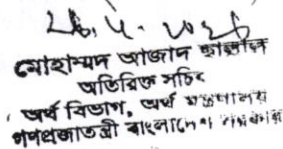 মোহাম্মদ আজাদ
অতিরিক্ত সচিব
অর্থ বিভাগ, অর্থ মন্ত্রণালয়
গণপ্রজাতন্ত্রী বাংলাদেশ সরকার